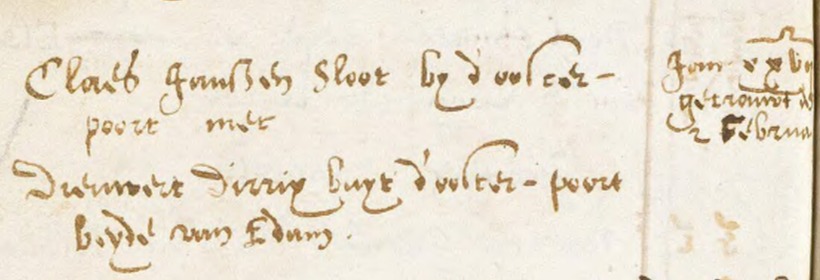 Claes Janssen Sloot by d'ooster-
poort met
Dieuwert Dirrix buyt d'ooster-poort
beyde van Edam.
Jan
getrouwt
2 Februa